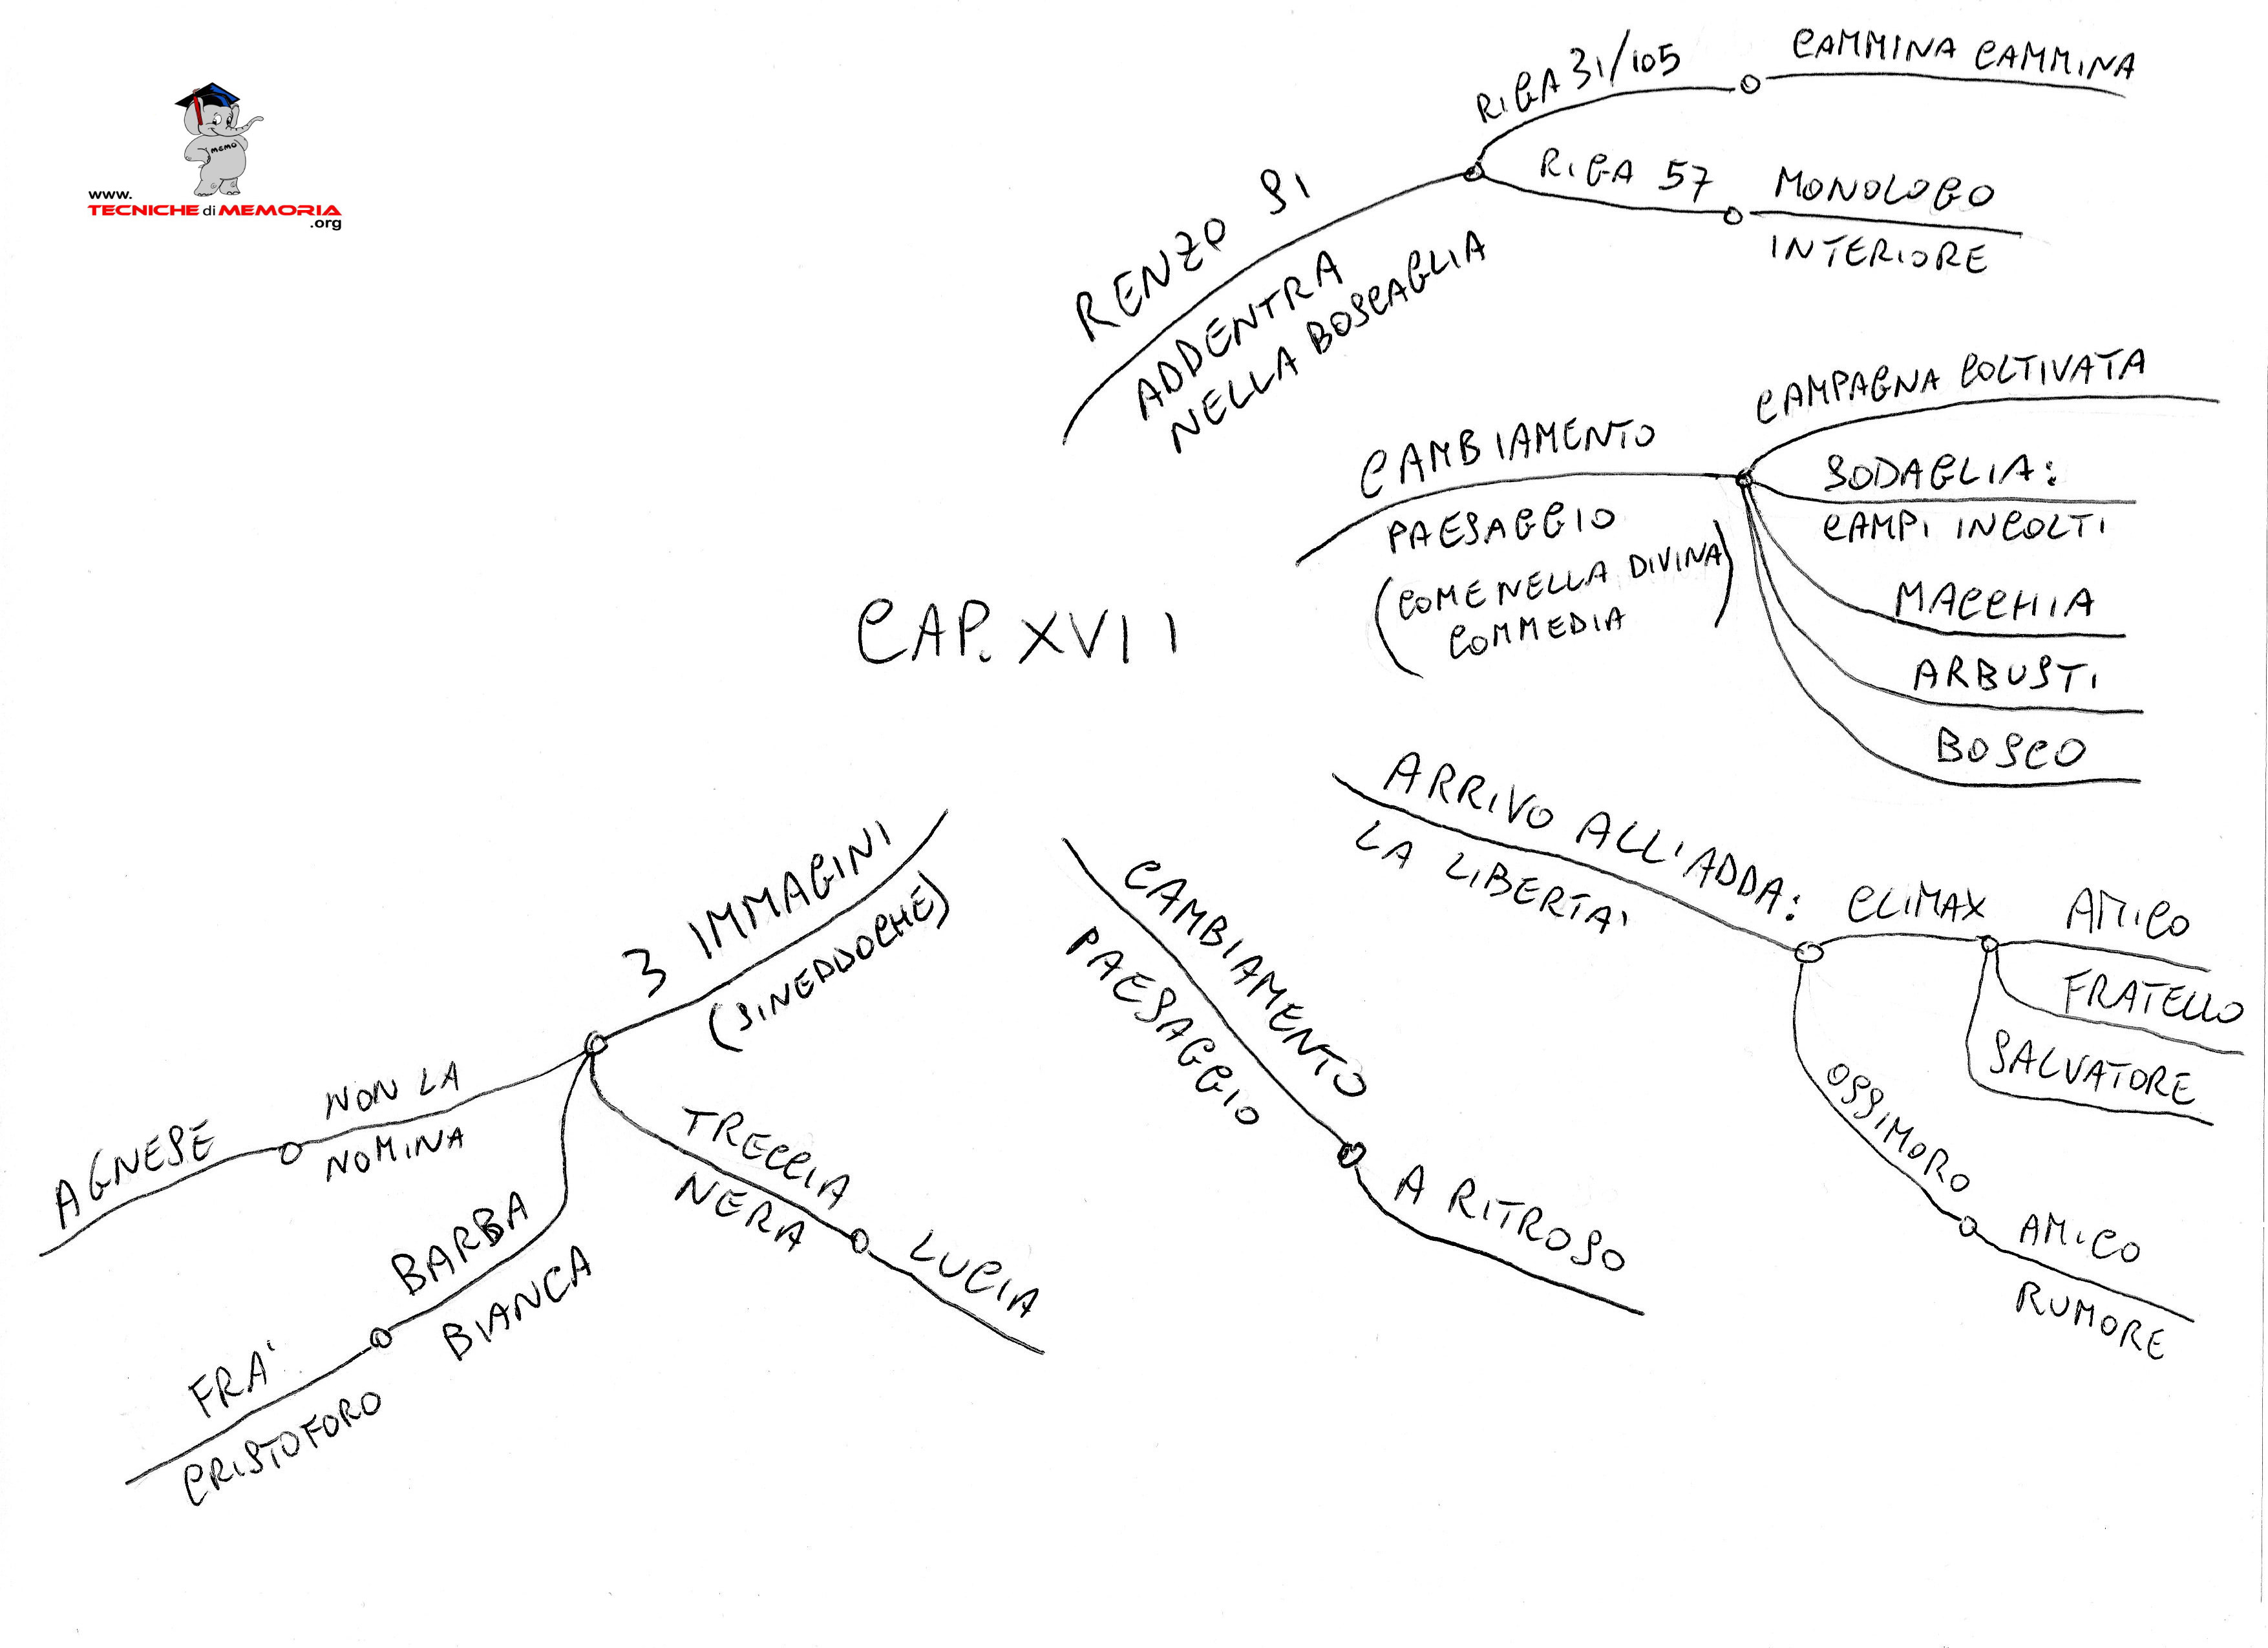 MEMO
www.
TECNICHE di MEMORIA
.org
CAP. XVII
RENZO SI
ADDENTRA
NELLA BOSCAGLIA
RIGA 31/105
CAMMINA CAMMINA
RIGA 57
MONOLOGO
INTERIORE
CAMBIAMENTO
PAESAGGIO
(COME NELLA DIVINA
COMMEDIA)
CAMPAGNA COLTIVATA
SODAGLIA:
CAMPI INCOLTI
MACCHIA
ARBUSTI
BOSCO
ARRIVO ALL'ADDA:
LA LIBERTA'
CLIMAX
AMICO
FRATELLO
SALVATORE
OSSIMORO
AMICO
RUMORE
CAMBIAMENTO
PAESAGGIO
A RITROSO
3 IMMAGINI
(SINEDDOCHE)
TRECCIA
NERA
LUCIA
BARBA
BIANCA
FRA'
CRISTOFORO
NON LA
NOMINA
AGNESE